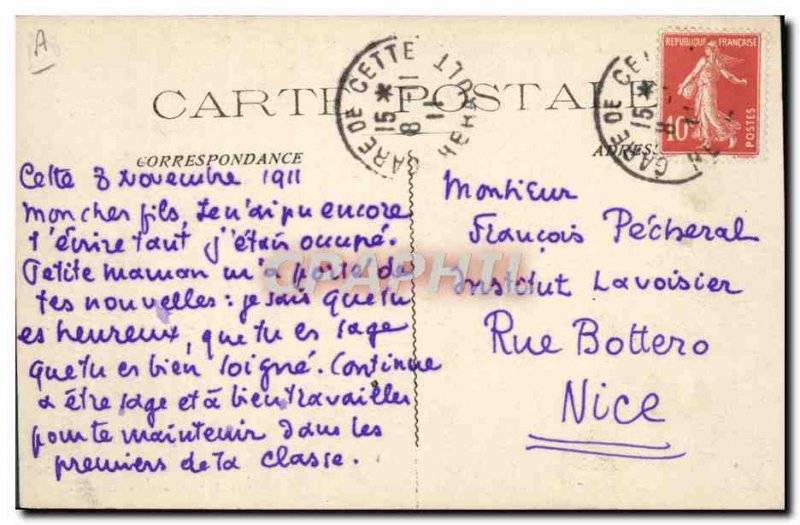 A
CARTE POSTALE
GARE DE CETTE
15 *
8 - 11
HERAULT
GARE DE CE
15 *
REPUBLIQUE FRANÇAISE
10
POSTES
CORRESPONDANCE
ADRESS
Cette 8 Novembre 1911
Mon cher fils, Je n'ai pu encore
t'écrire tant j'étais occupé.
Petite maman m'a porté de
tes nouvelles : je sais que tu
es heureux, que tu es sage
que tu es bien soigné. Continue
a être sage et à bien travailler
pour te maintenir dans les
premiers de ta classe.
Monsieur
François Pécheral
Institut Lavoisier
Rue Bottero
Nice
CPAPHIL